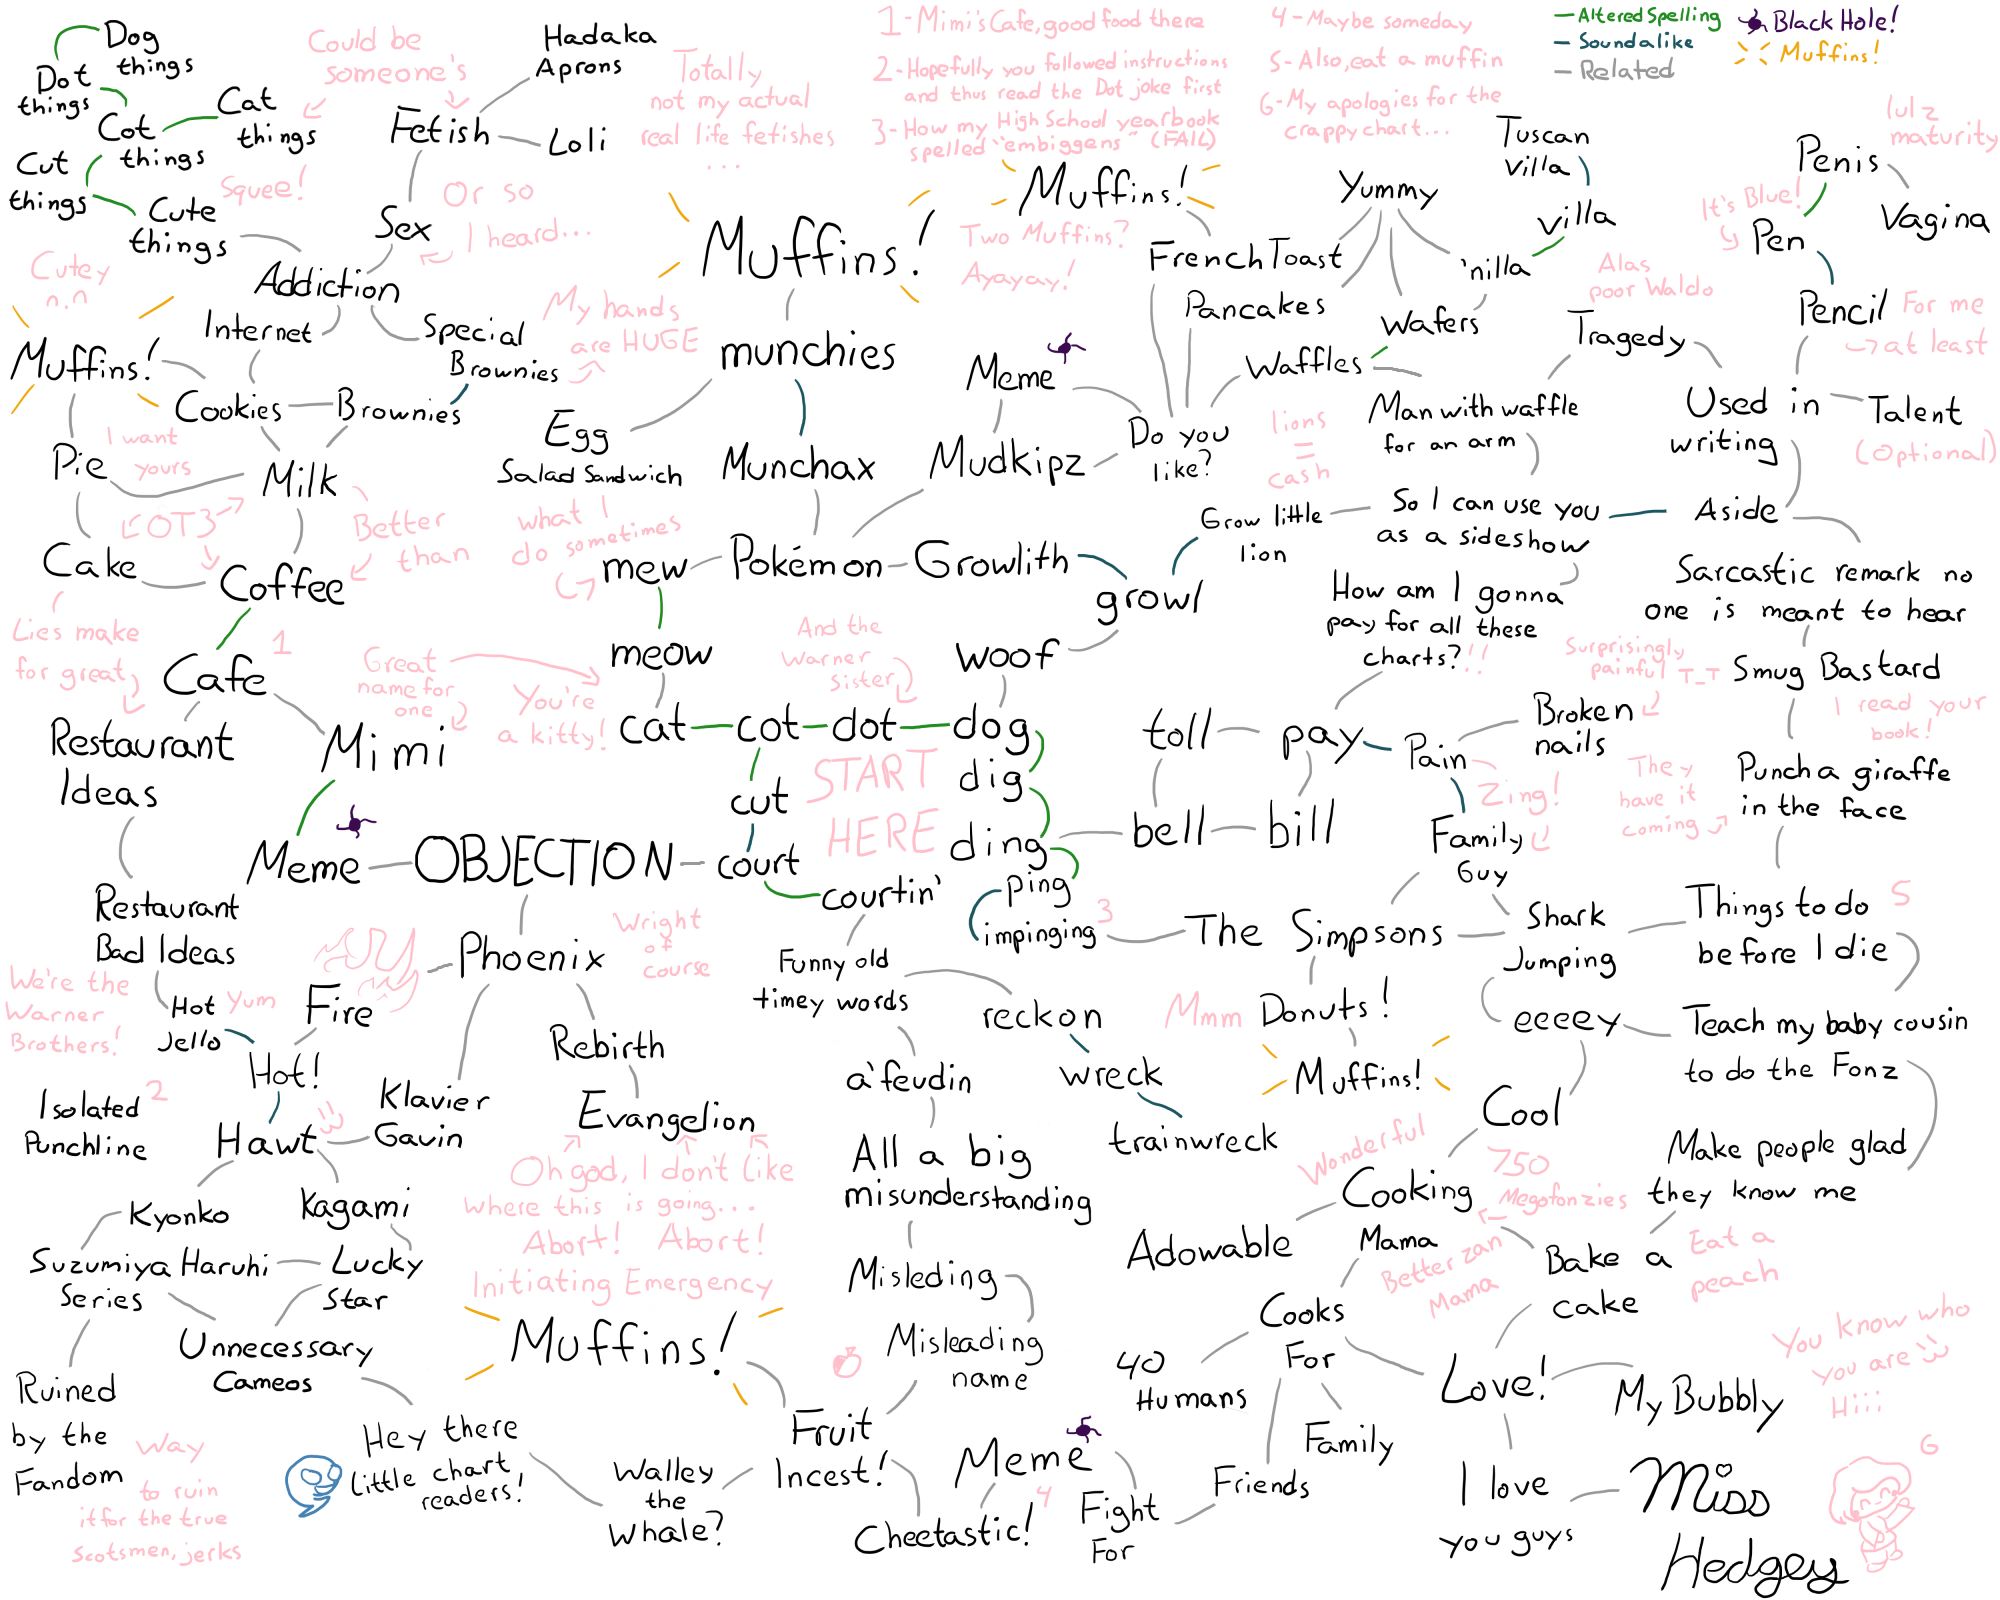 Dog
things
Dot
things
Cot
things
Cat
things
Cut
things
Cute
things
Squee!
Could be
someone's
Fetish
Hadaka
Aprons
Loli
Totally
not my actual
real life fetishes
...
Sex
Or so
I heard...
Addiction
Internet
Special
Brownies
My hands
are HUGE
Cutey
n.n
Muffins!
Cookies
Brownies
Pie
I want
yours
Milk
LOT3
Better
than
Cake
Coffee
Lies make
for great
Cafe
1
Restaurant
Ideas
Mimi
Great
name for
one
You're
a kitty!
Meme
OBJECTION
Restaurant
Bad Ideas
We're the
Warner
Brothers!
Hot
Jello
Yum
Fire
Hot!
Isolated
Punchline
2
Hawt
Klavier
Gavin
Phoenix
Wright
of
course
Rebirth
Evangelion
Oh god, I don't like
where this is going...
Abort! Abort!
Initiating Emergency
Muffins!
Kyonko
Kagami
Suzumiya Haruhi
Series
Lucky
Star
Unnecessary
Cameos
Ruined
by the
Fandom
Way
to ruin
it for the true
Scotsmen, jerks
Hey there
little chart
readers!
Walley
the
Whale?
Fruit
Incest!
Cheetastic!
Meme
4
Fight
For
1-Mimi's Cafe, good food there
2-Hopefully you followed instructions
and thus read the Dot joke first
3-How my High School yearbook
spelled "embiggens" (FAIL)
4-Maybe someday
5-Also, eat a muffin
6-My apologies for the
crappy chart...
Altered Spelling
Soundalike
Related
Black Hole!
Muffins!
Muffins!
munchies
Egg
Salad Sandwich
Munchax
what I
do sometimes
mew
Pokémon
Growlith
growl
meow
woof
And the
Warner
sister
cat
cot
dot
dog
START
HERE
dig
ding
ping
impinging
3
cut
court
courtin'
Muffins!
Two Muffins?
Ayayay!
Meme
Mudkipz
Do you
like?
French Toast
Pancakes
Waffles
Yummy
Wafers
'nilla
villa
Tuscan
villa
Man with waffle
for an arm
Tragedy
Alas
poor Waldo
lions
=
cash
Grow little
lion
So I can use you
as a sideshow
How am I gonna
pay for all these
charts?!!
Penis
Vagina
lulz
maturity
It's Blue!
Pen
Pencil
For me
at least
Used in
writing
Talent
(Optional)
Aside
Sarcastic remark no
one is meant to hear
Smug Bastard
I read your
book!
Punch a giraffe
in the face
They
have it
coming
Surprisingly
painful T_T
Broken
nails
toll
pay
Pain
bell
bill
Zing!
Family
Guy
The Simpsons
Shark
Jumping
Things to do
before I die
5
Mmm
Donuts!
Muffins!
eeeey
Teach my baby cousin
to do the Fonz
Cool
750
Megafonzies
Make people glad
they know me
Funny old
timey words
reckon
wreck
trainwreck
a'feudin
All a big
misunderstanding
Misleding
Misleading
name
Wonderful
Cooking
Mama
Adowable
Better zan
Mama
Bake a
cake
Eat a
peach
Cooks
For
40
Humans
Friends
Family
Love!
My Bubbly
You know who
you are
Hiii
I love
you guys
Miss
Hedgey
6